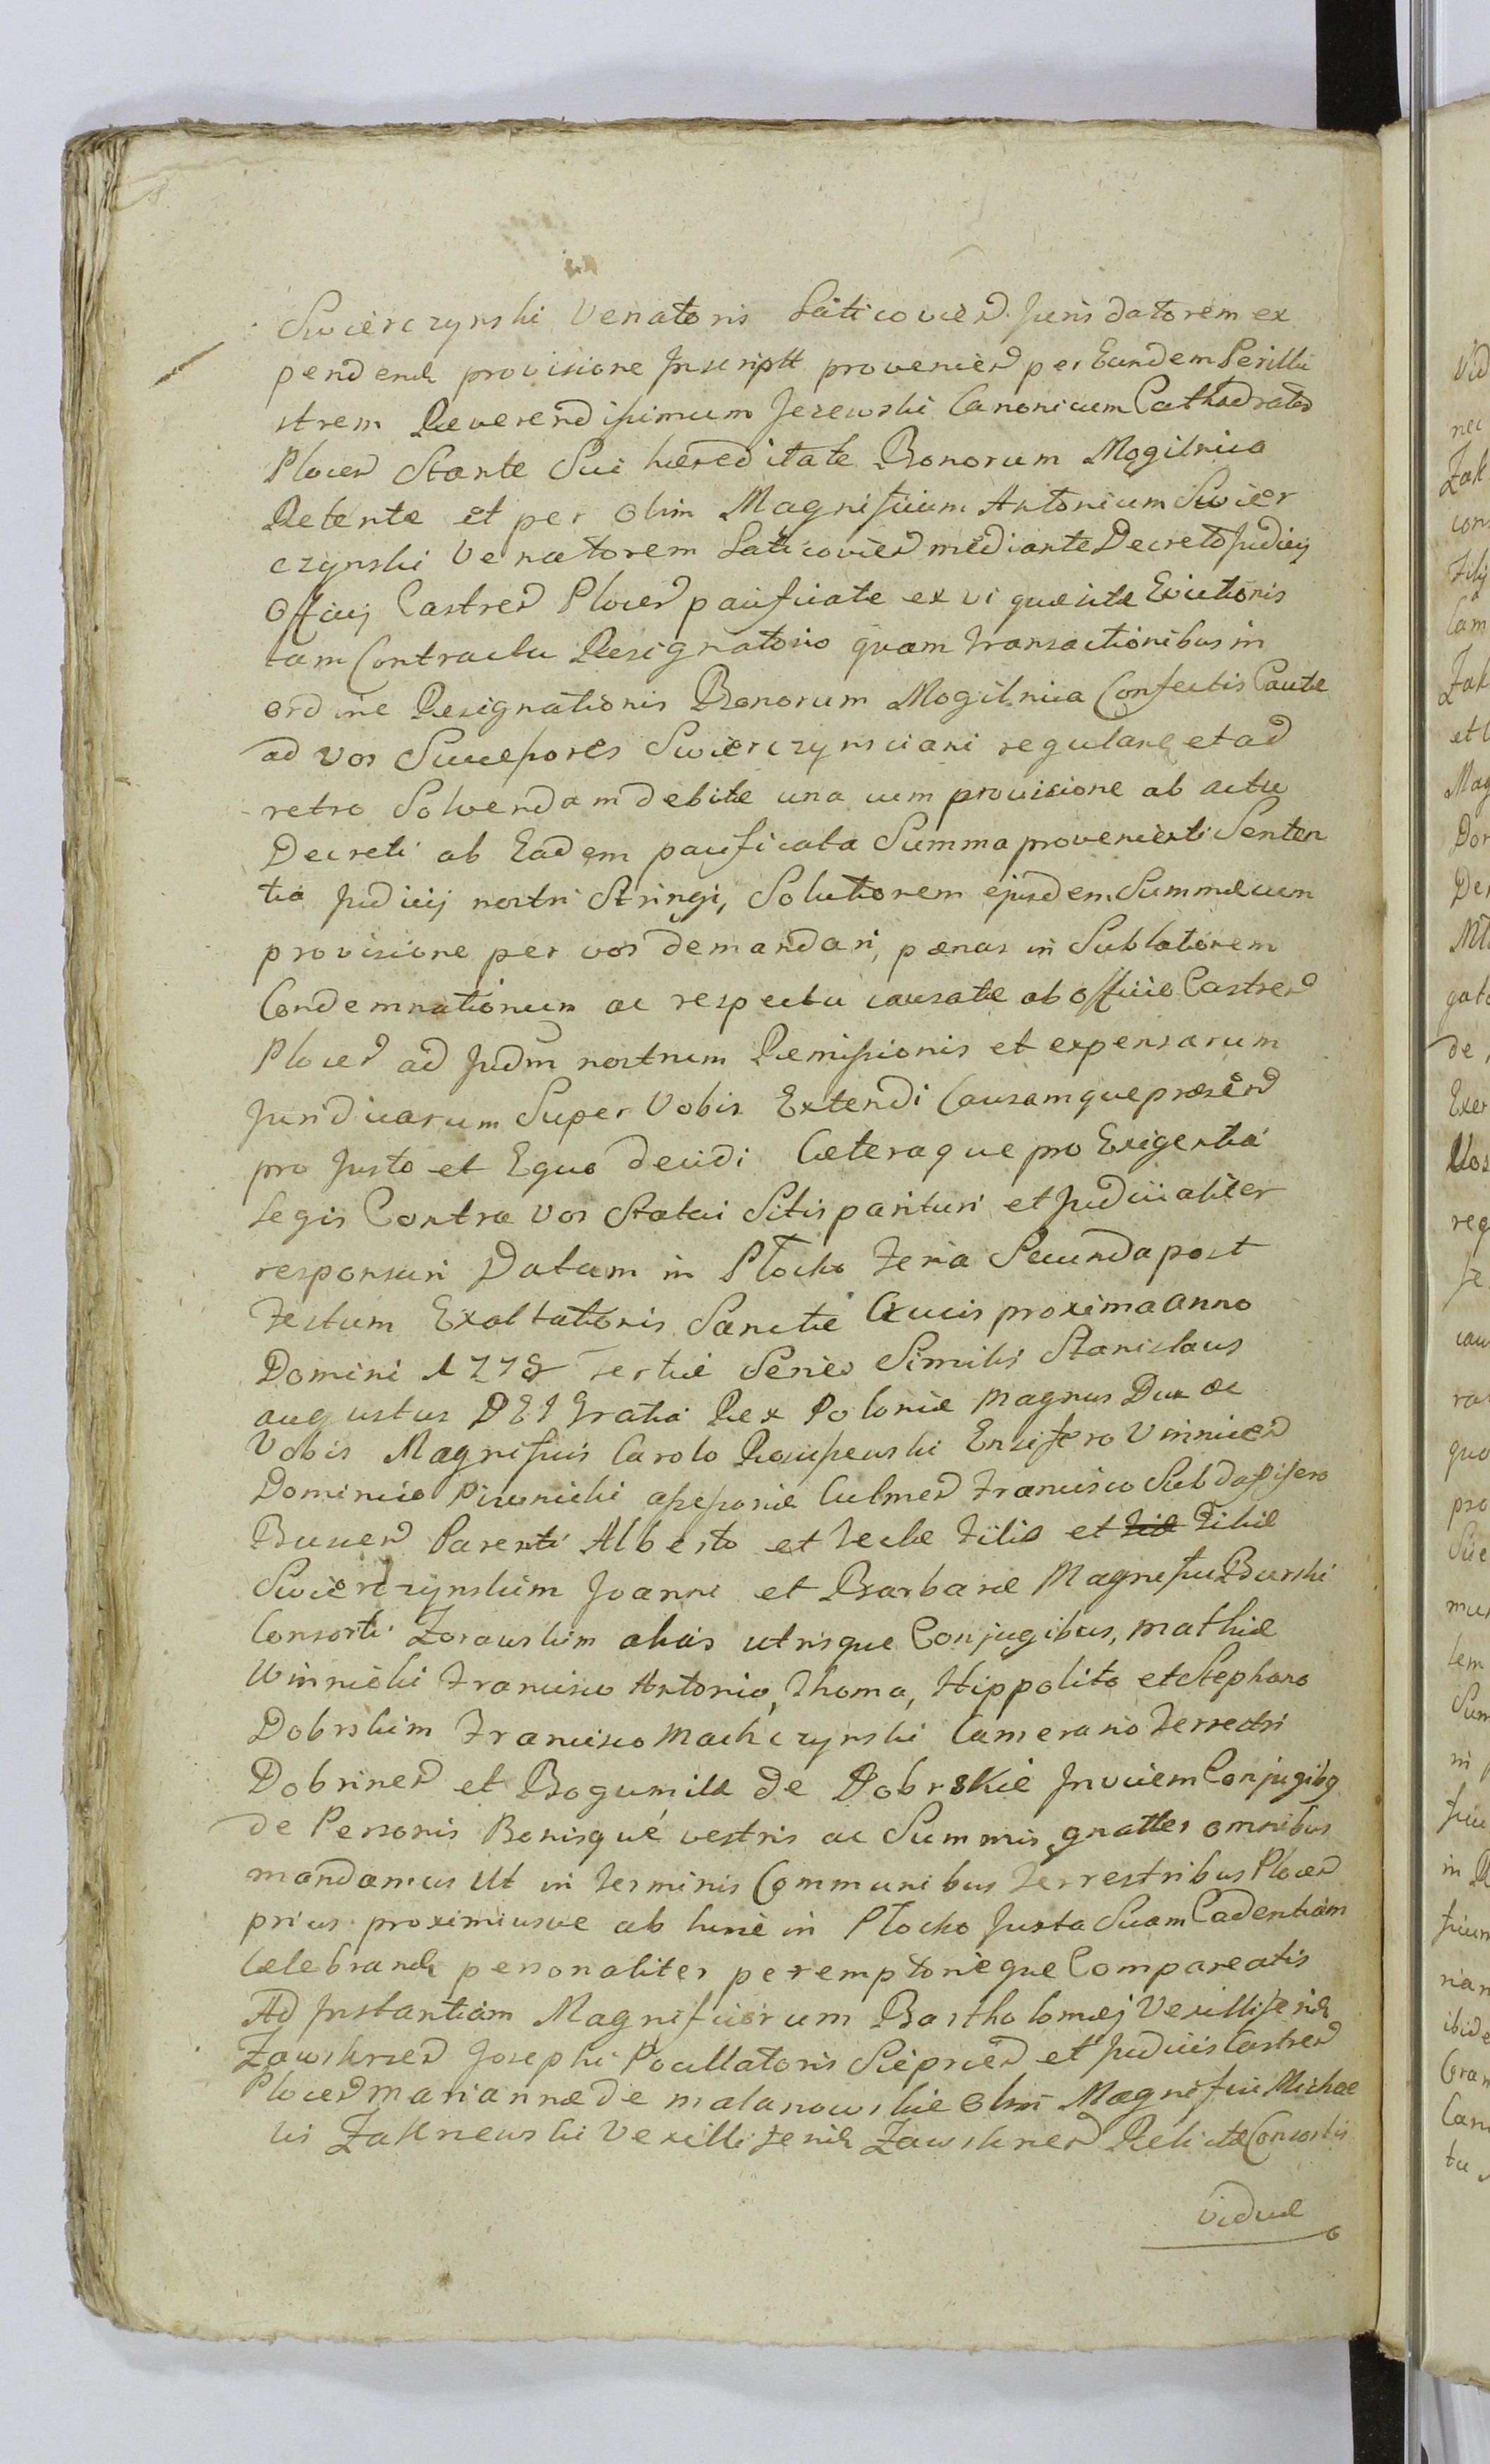 Swierczynski Venatoris Laticovien Juris datorem ex
pendend provisione Inscriptt provenien per Eundem Perillu
strem Reverendissimum Jezewski Canonicum Cathedralem
Plocen Stante Sui hæreditate Bonorum Mogilnica
Retentæ et per Olim Magnificum Antonium Swier
czynski Venatorem Laticovien mediante Decreto Judicij
Officij Castren Plocen pacificatæ ex vi quæsitæ Evictionis
tam Contractu Resignatorio quam transactionibus in
ordine Resignationis Bonorum Mogilnica Confectis Cautæ
ad vos Successores Swierczynsciani reguland et ad
retro Solvendam debitæ una cum provisione ab actu
Decreti ab Eadem pacificata Summa provenienti Senten
tia Judicij nostri Stringi, Solutionem ejusdem Summæ cum
provisione per vos demandari, pænas in Sublationem
Condemnationum ac respectu causatæ ab Officio Castren
Plocen ad Judm nostrum Remissionis et expensarum
Juridicarum Super Vobis Extendi Causamque præsen
pro Justo et Equo decidi Cæteraque pro Exigentia
Legis Contra vos Statui Sitis parituri et Judicialiter
responsuri Datum in Płocko Feria Secunda post
Festum Exaltationis Sanctæ Crucis proxima anno
Domini 1778 Tertiæ Series Similis Stanislaus
augustus DEI Gratia Rex Poloniæ Magnus Dux &c
Vobis Magnificis Carolo Rosciszewski Ensifero Vinnicen
Dominico Piwnicki assessoriæ Culmen Francisco Subdapifero
Buscen Parenti Alberto et Teclæ Filio et Filiæ Filiæ
Swierczynskim Joanni et Barbaræ Magnifici Burski
Consorti Zorawskim alias utrisque Conjugibus, Mathiæ
Winnicki Francisco Antonio, Thoma, Hippolito et Stephano
Dobrskim Francisco Machczynski Camerario Terrestri
Dobrinen et Bogumila de Dobrskie Invicem Conjugibg
de Personis Bonisque vestris ac Summis gnatter omnibus
mandamus Ut in Terminis Communibus Terrestribus Plocen
prius proximiusve ab hinc in Płocko Juxta Suam Cadentiam
Celebrand personaliter peremptorieque Compareatis
Ad Instantiam Magnificorum Bartholomæj Vexilliferid
Zawskrzen Josephi Pocillatoris Sieprcen et Judicis Castren
Plocen Mariannæ de Malanowskie Olim Magnifici Michae
lis Zakrzewski Vexilliferid Zawskrzen Relictæ Consortis
viduæ